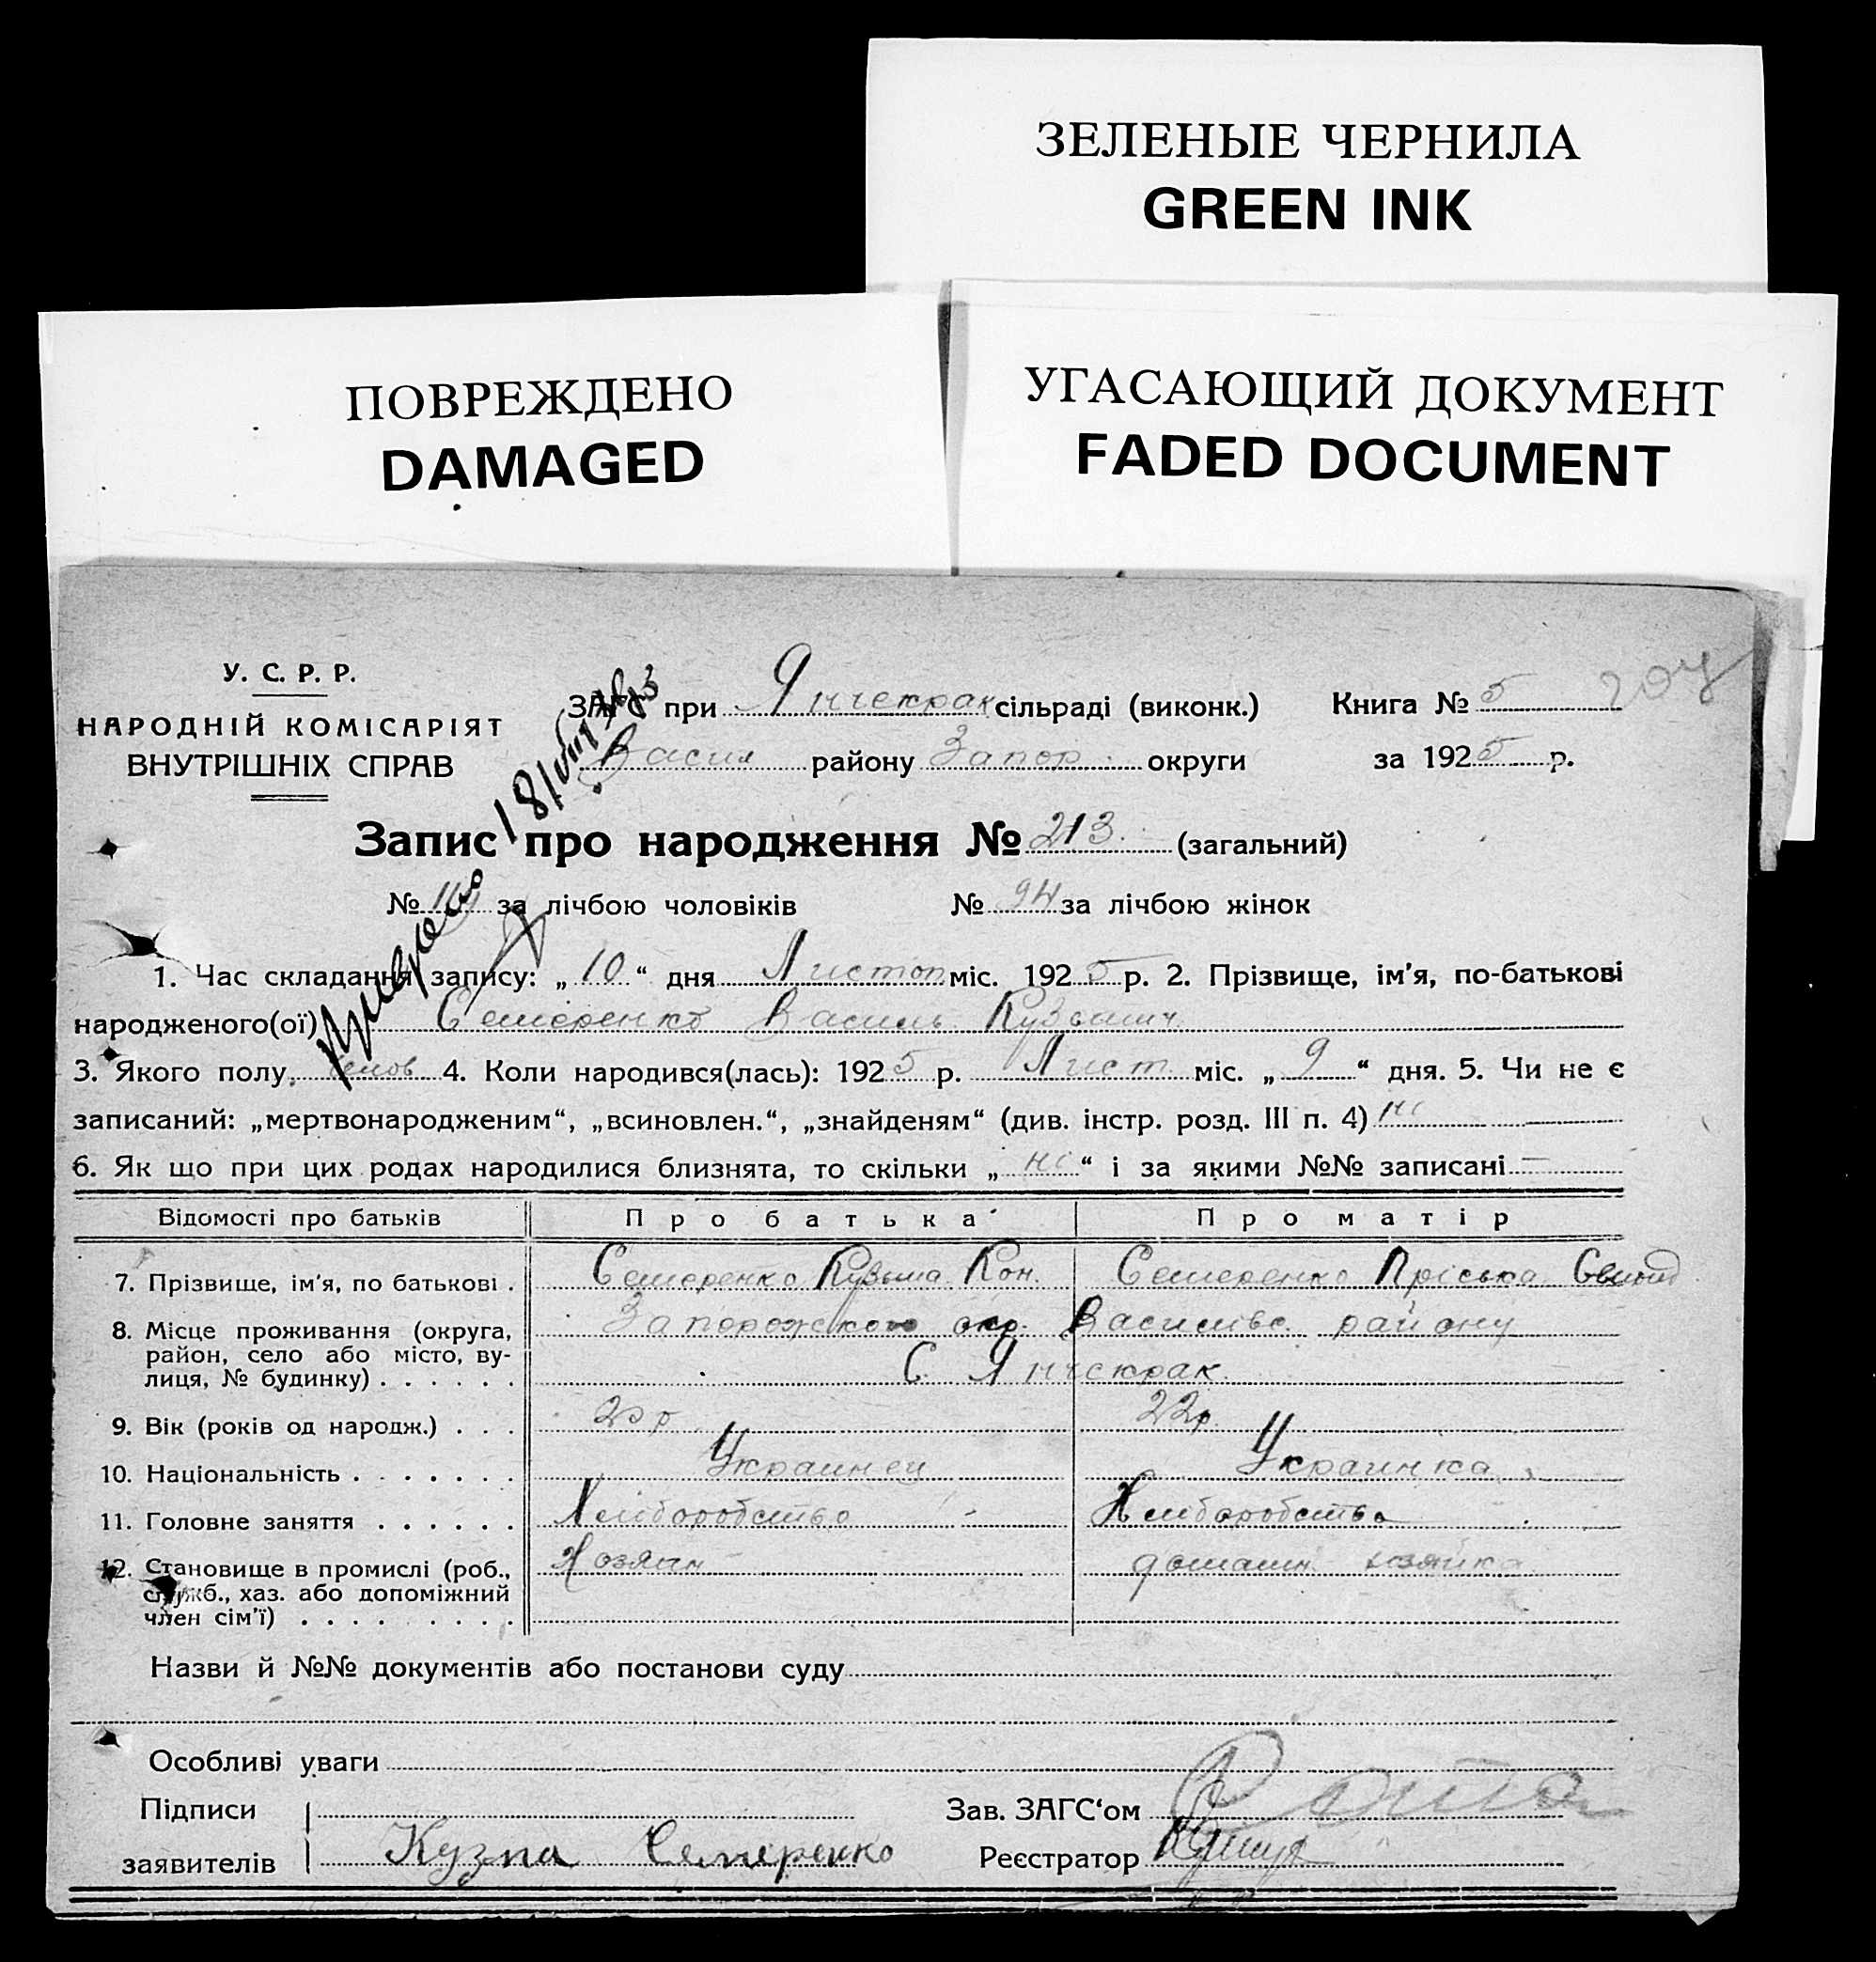 ЗЕЛЕНЫЕ ЧЕРНИЛА
GREEN INK
ПОВРЕЖДЕНО
DAMAGED
УГАСАЮЩИЙ ДОКУМЕНТ
FADED DOCUMENT
У. С. Р. Р.
НАРОДНІЙ КОМІСАРІЯТ
ВНУТРІШНІХ СПРАВ
ЗАГС при Янчекрак сільраді (виконк.) Книга № 5
Васил району Запор. округи за 1925 р.
Запис про народження № 213. (загальний)
№ за лічбою чоловіків № 94 за лічбою жінок
1. Час складання запису: „ 10 “ дня Листоп міс. 1925 р. 2. Прізвище, ім'я, по-батькові
народженого(ої) Семеренко Василь Кузьмич
3. Якого полу 4. Коли народився(лась): 1925 р. Лист міс. „ 9 “ дня. 5. Чи не є
записаний: „мертвонародженим“, „всиновлен.“, „знайденям“ (див. інстр. розд. III п. 4) ні
6. Як що при цих родах народилися близнята, то скільки „ ні “ і за якими №№ записані —
Відомості про батьків Про батька Про матір
7. Прізвище, ім'я, по батькові . Семеренко Кузьма Кон. Семеренко Пріська
8. Місце проживання (округа, Запорожского окр. Василівс. району
район, село або місто, ву-
лиця, № будинку) . . . . . . С. Янчекрак
9. Вік (років од народж.) . . . 20 р 22р.
10. Національність . . . . . . . Украинец Украинка
11. Головне заняття . . . . . . Хліборобство Хліборобство
12. Становище в промислі (роб., Хозяин домашн. хозяйка
служб., хаз. або допоміжний
член сім'ї) . . . . . . . . .
Назви й №№ документів або постанови суду
Особливі уваги
Підписи Зав. ЗАГС‘ом
заявителів Кузма Семеренко Реєстратор